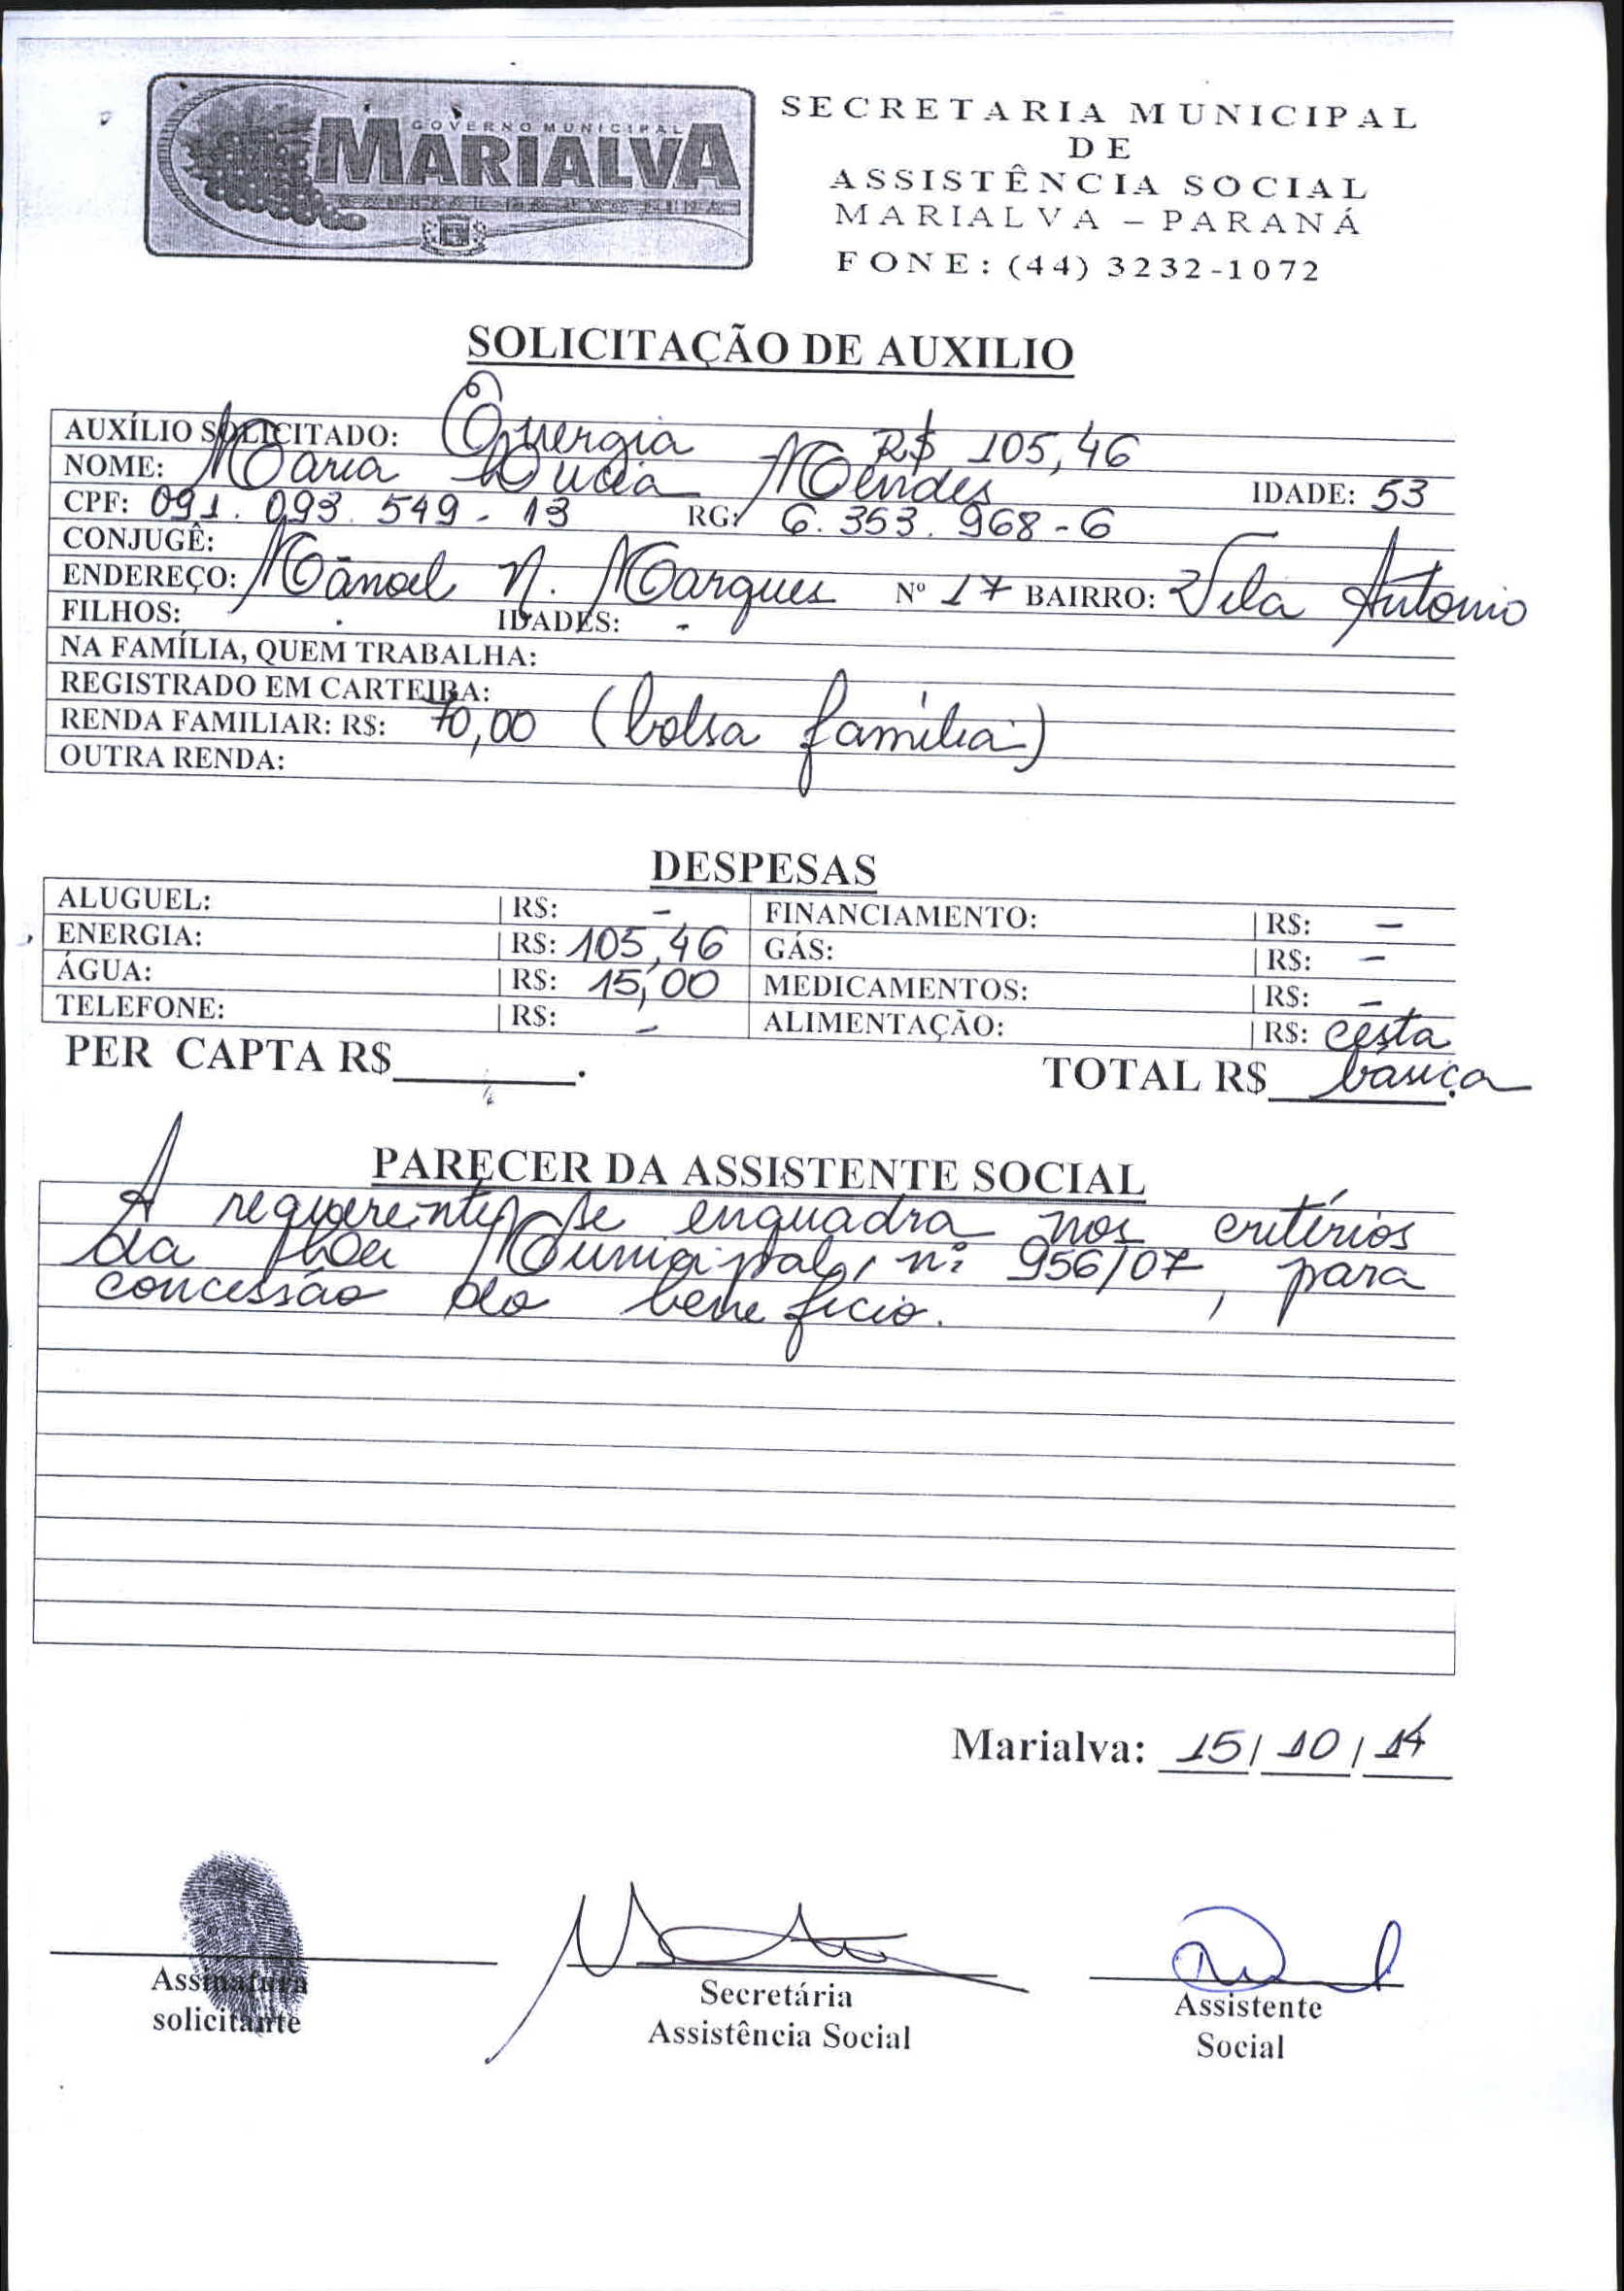 GOVERNO MUNICIPAL
MARIALVA
SECRETARIA MUNICIPAL
DE
ASSISTÊNCIA SOCIAL
MARIALVA – PARANÁ
FONE: (44) 3232-1072
SOLICITAÇÃO DE AUXILIO
AUXÍLIO SOLICITADO: Energia R$ 105,46
NOME: Maria Lucia Mendes IDADE: 53
CPF: 091.093.549-13 RG: 6.353.968-6
CONJUGÊ:
ENDEREÇO: Manoel N. Marques Nº 17 BAIRRO: Vila Antonio
FILHOS: . IDADES: -
NA FAMÍLIA, QUEM TRABALHA:
REGISTRADO EM CARTEIRA:
RENDA FAMILIAR: R$: 70,00 (bolsa família)
OUTRA RENDA:
DESPESAS
ALUGUEL: R$: - FINANCIAMENTO: R$: -
ENERGIA: R$: 105,46 GÁS: R$: -
ÁGUA: R$: 15,00 MEDICAMENTOS: R$: -
TELEFONE: R$: - ALIMENTAÇÃO: R$: cesta
PER CAPTA R$________. TOTAL R$ basica.
PARECER DA ASSISTENTE SOCIAL
A requerente se enquadra nos critérios
da Lei Municipal, nº 956/07, para
concessão do benefício.
Marialva: 15/10/14
Assinatura Secretária Assistente
solicitante Assistência Social Social